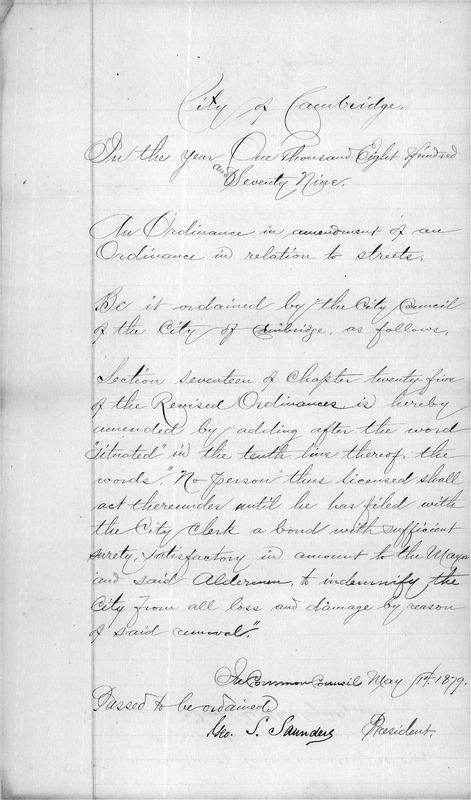 City of Cambridge.
In the year One Thousand Eight Hundred
and Seventy Nine.
An Ordinance in amendment of an
Ordinance in relation to streets.
Be it ordained by the City Council
of the City of Cambridge, as follows,
Section seventeen of Chapter twenty five
of the Revised Ordinances is hereby
amended by adding after the word
"situated" in the tenth line thereof, the
words. "No Person thus licensed shall
act thereunder until he has filed with
the City clerk a bond with sufficient
surety, satisfactory in amount to the Mayor
and said Aldermen, to indemnify the
City from all loss and damage by reason
of said removal."
In Common Council May 1st. 1879.
Passed to be ordained
Geo. S. Saunders President.